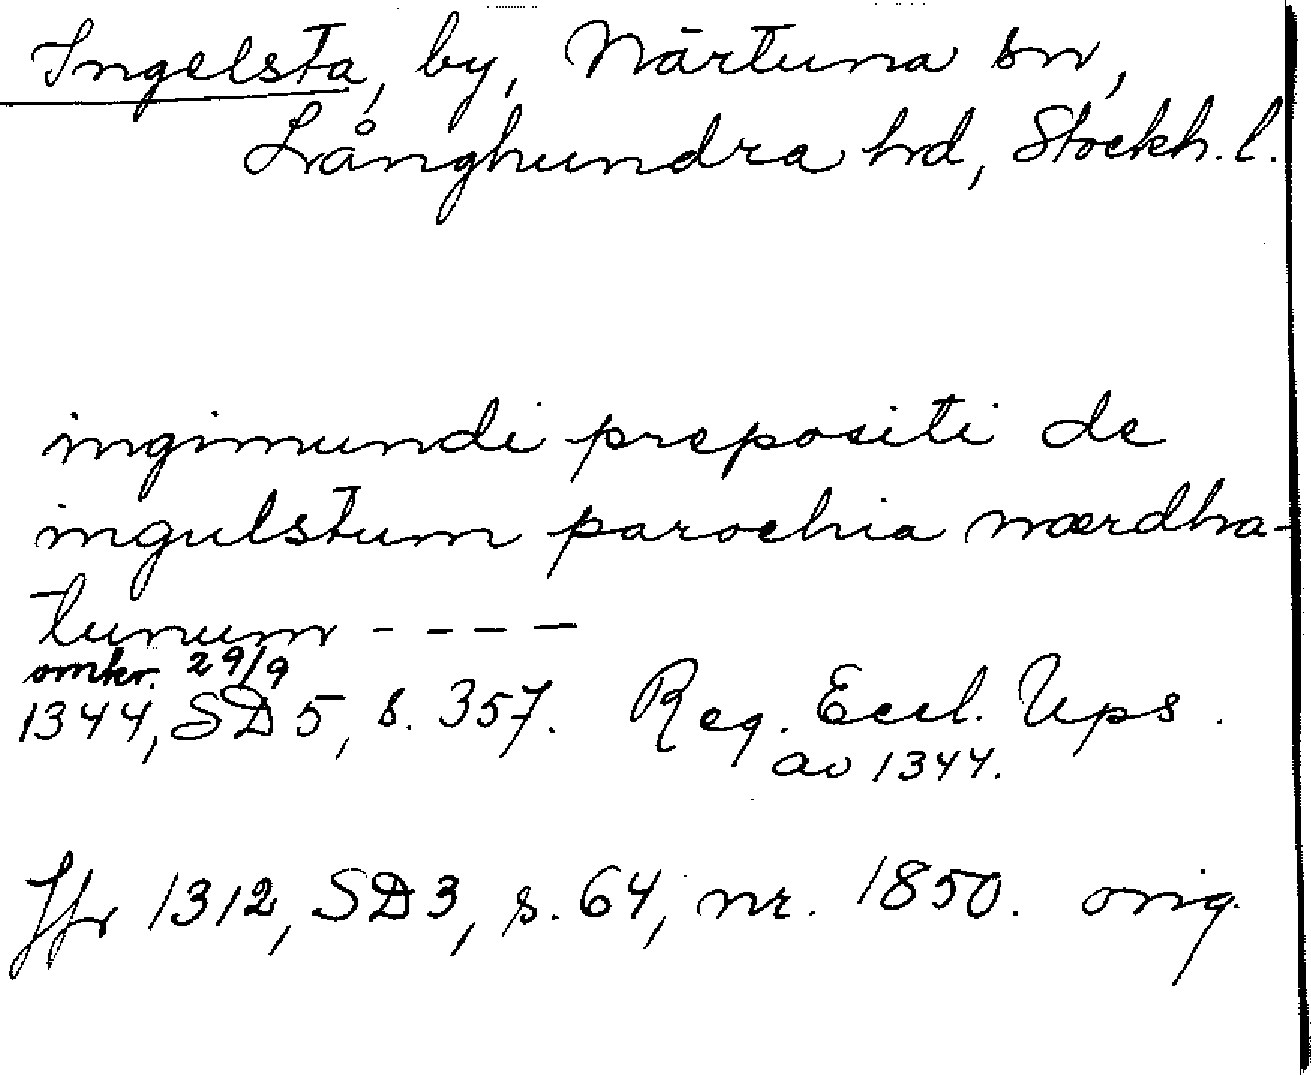 Ingelsta, by, Närtuna sn,
Långhundra hd, Stockh. l.
ingimundi prepositi de
ingulstum parochia nærdha-
tunum - - - -
omkr. 29/9
1344, SD 5, s. 357. Reg. Eccl. Ups.
av 1344.
Jfr 1312, SD 3, s. 64, nr. 1850. orig.